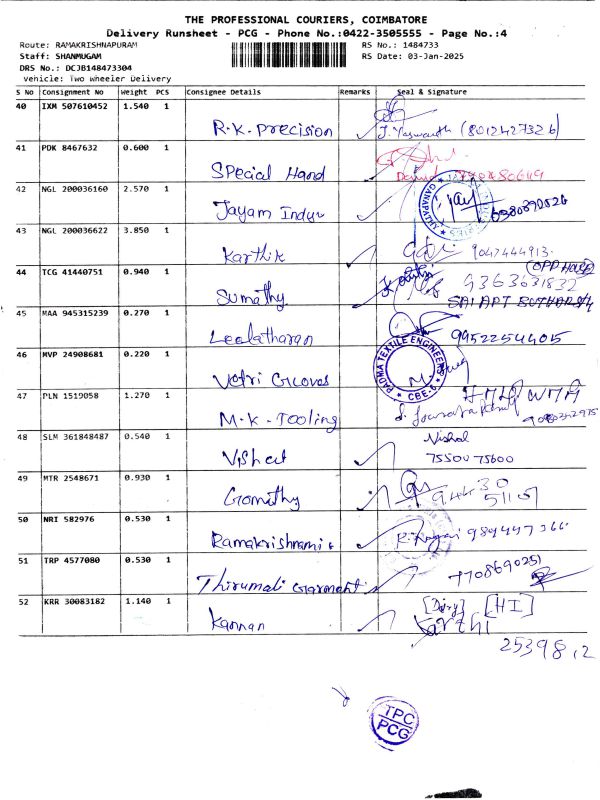 THE PROFESSIONAL COURIERS, COIMBATORE
Delivery Runsheet - PCG - Phone No.:0422-3505555 - Page No.:4
Route: RAMAKRISHNAPURAM RS No.: 1484733
Staff: SHANMUGAM RS Date: 03-Jan-2025
DRS No.: DCJB148473304
Vehicle: Two Wheeler Delivery
S No Consignment No Weight PCS Consignee Details Remarks Seal & Signature
40 IXM 507610452 1.540 1
R.K. Precision J. Yaswanth (8012427326)
41 PDK 8467632 0.600 1
Special Hand David
42 NGL 200036160 2.570 1
Jayam 6380890826
43 NGL 200036622 3.850 1
Karthik 9047444913
44 TCG 41440751 0.940 1 (OPP HOUSE)
Sumathy 9363631832
SAI APT
45 MAA 945315239 0.270 1
Leelatharan 9952254405
46 MVP 24908681 0.220 1 PADMA TEXTILE ENGINEERS CBE-6
Vetri
47 PLN 1519058 1.270 1
M.K. Tooling
48 SLM 361848487 0.540 1 Vishal
7550075600
49 MTR 2548671 0.930 1
Gomathy
50 NRI 582976 0.530 1
51 TRP 4577080 0.530 1 7708690251
Thirumali Garment
52 KRR 30083182 1.140 1 [HI]
Kannan Karthi
25398,2
TPC
PCG